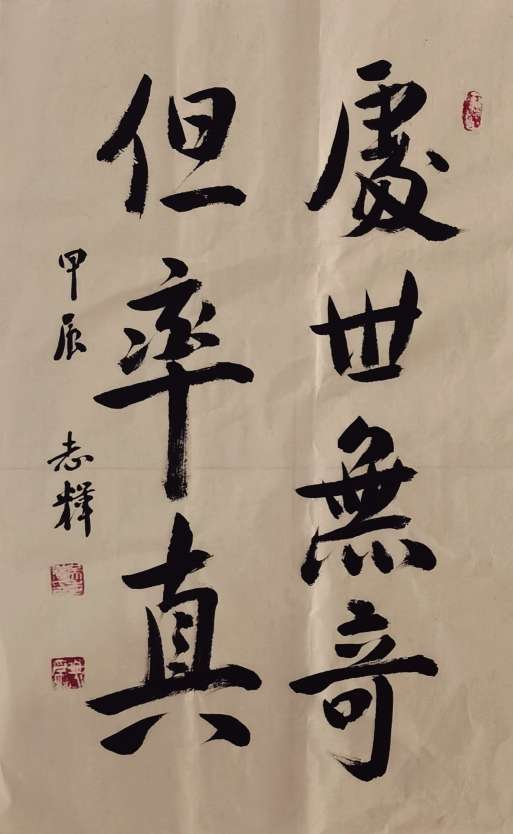 處世無奇
但率真
甲辰
志輝